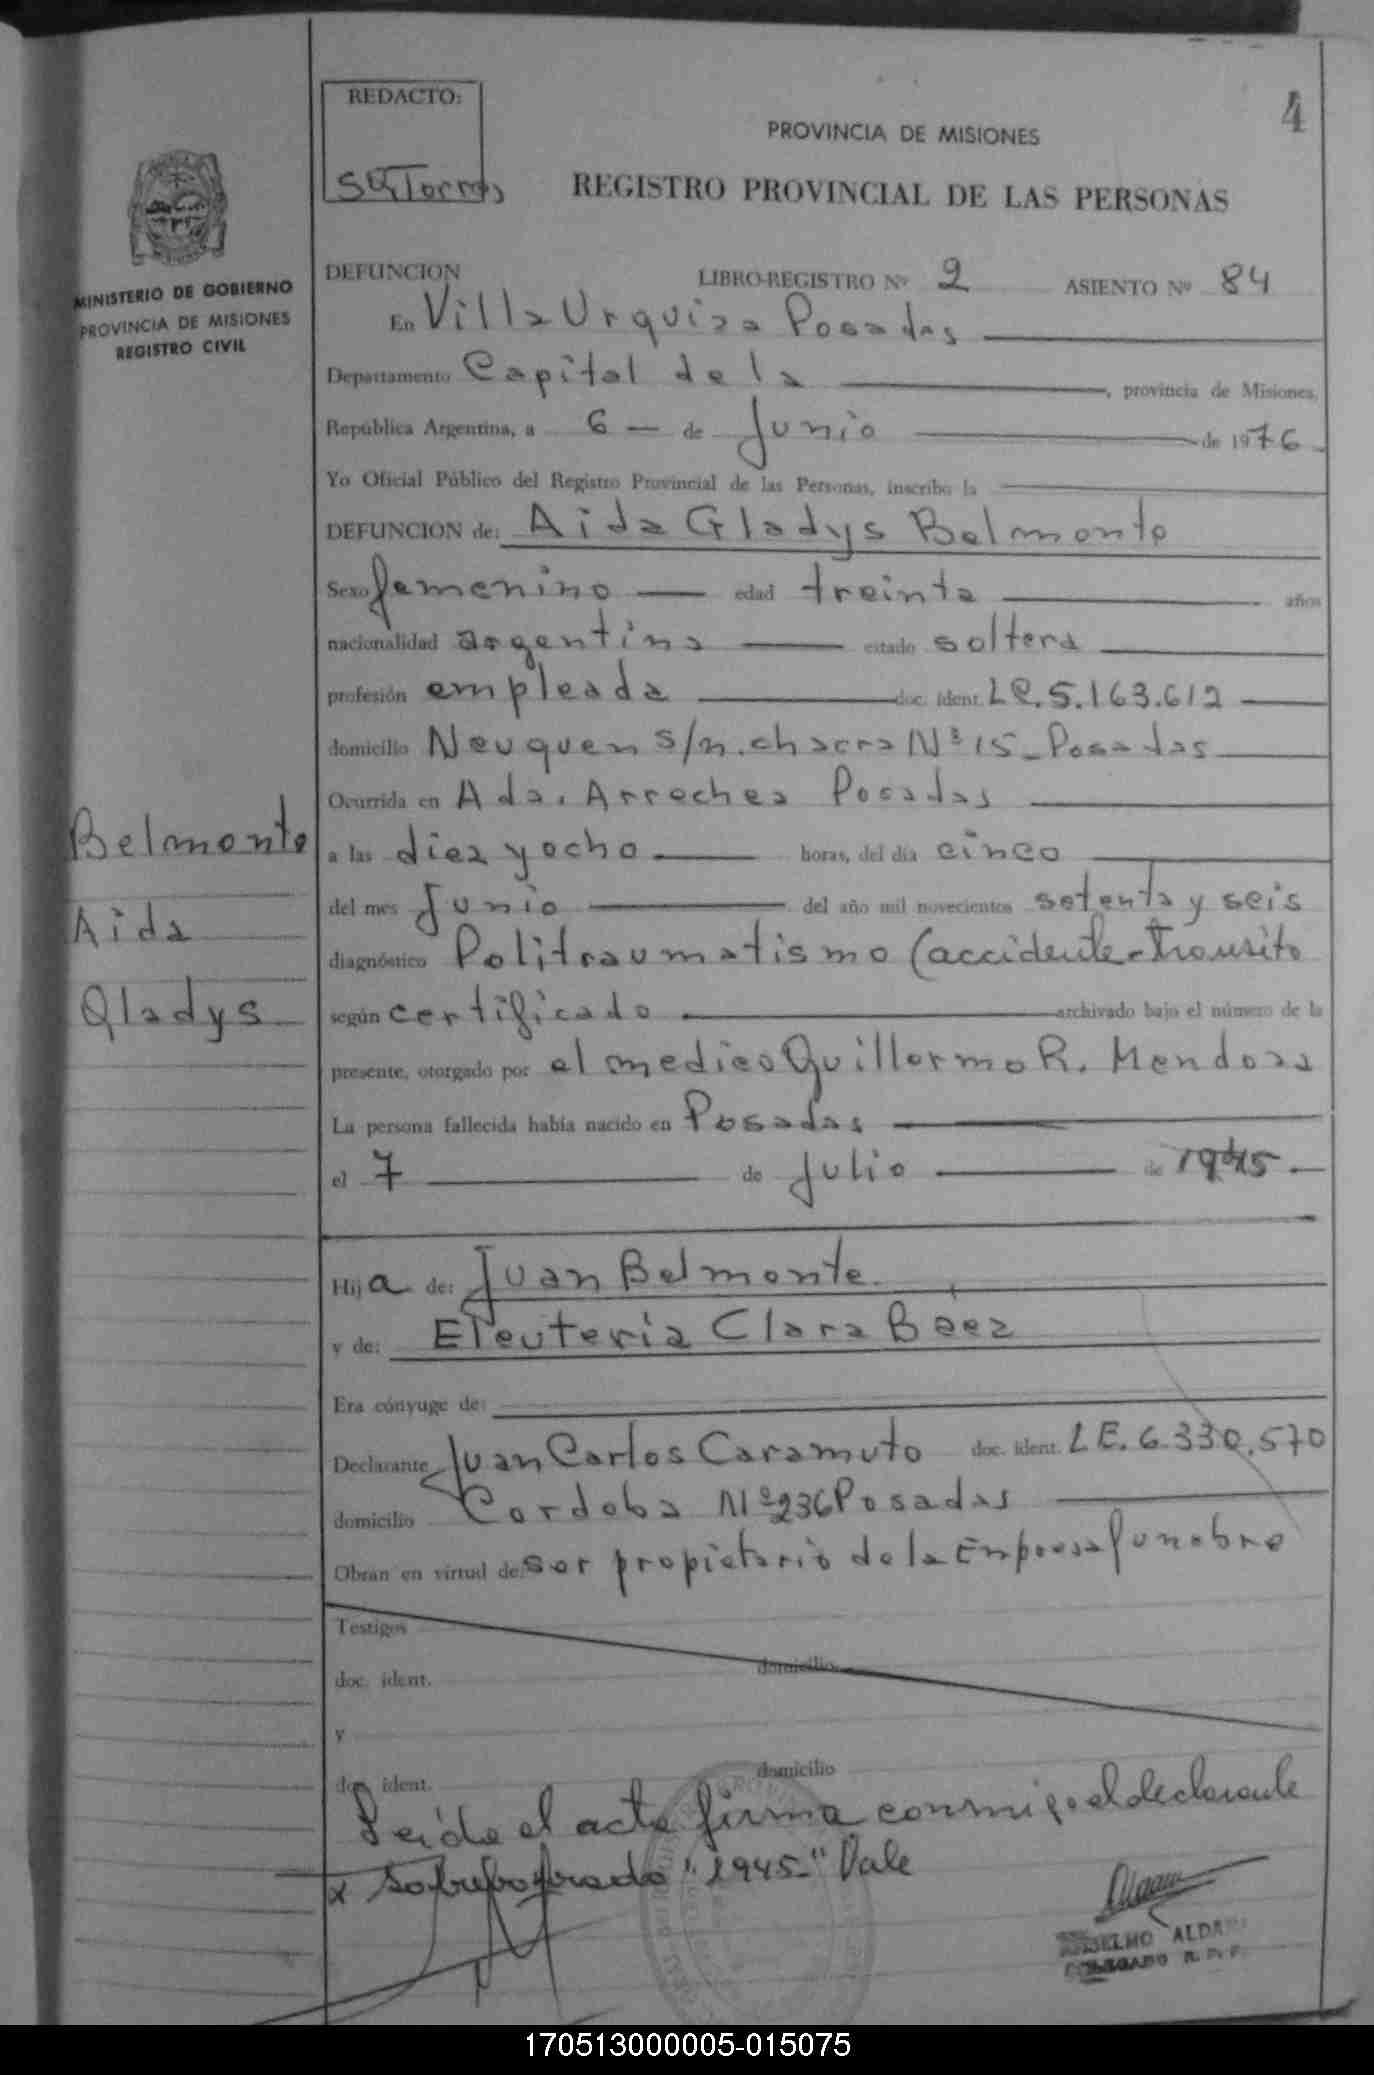 4
REDACTO:
PROVINCIA DE MISIONES
REGISTRO PROVINCIAL DE LAS PERSONAS
MINISTERIO DE GOBIERNO
PROVINCIA DE MISIONES
REGISTRO CIVIL
DEFUNCION LIBRO-REGISTRO Nº 2 ASIENTO Nº 84
En Villa Urquiza Posadas
Departamento Capital de la , provincia de Misiones,
República Argentina, a 6 — de Junio de 1976
Yo Oficial Público del Registro Provincial de las Personas, inscribo la
DEFUNCION de: Aida Gladys Belmonte
Sexo femenino — edad treinta años
nacionalidad argentina — estado soltera
profesión empleada doc. ident. LC. 5.163.612
domicilio Neuquen s/n. chacra Nº 15_Posadas
Ocurrida en Ada. Arrechea Posadas
a las diez y ocho horas, del día cinco
del mes Junio del año mil novecientos setenta y seis
diagnóstico Politraumatismo (accidente-transito
según certificado archivado bajo el número de la
presente, otorgado por el medico Guillermo R. Mendoza
La persona fallecida había nacido en Posadas
el 7 de Julio de 1945
Belmonte
Aida
Gladys
Hija de: Juan Belmonte
y de: Eleuteria Clara Baez
Era cónyuge de:
Declarante Juan Carlos Caramuto doc. ident. LE. 6.330.570
domicilio Cordoba Nº 236 Posadas
Obran en virtud de: ser propietario de la Empresa funebre
Testigos
doc. ident. domicilio
y
doc. ident. domicilio
Leída el acta firma conmigo el declarante
x Sobreborrado "1945-" Vale
ANSELMO ALDA
DELEGADO R. P. P.
170513000005-015075